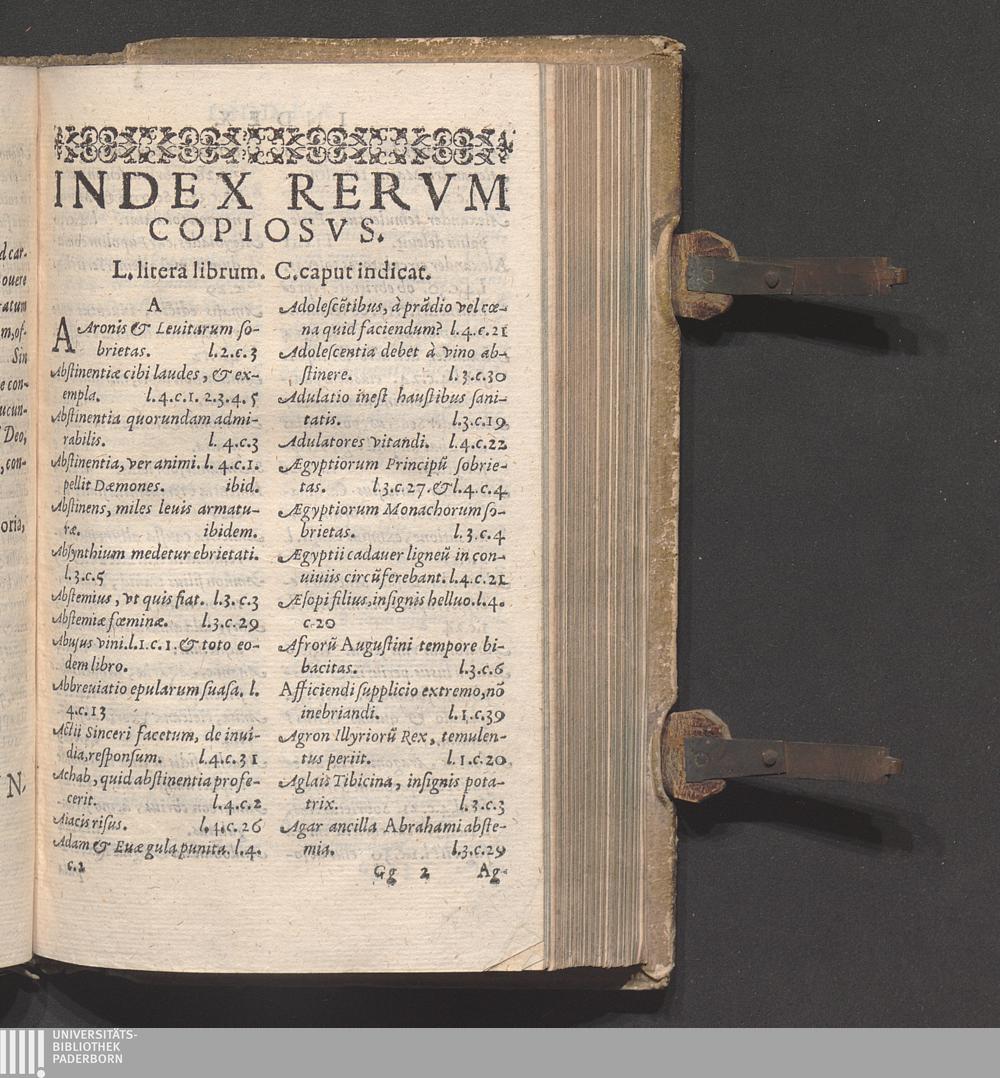 d car-
ouere
ratum
m, of-
Sin
e con-
ucun-
Deo,
, con-
oria,
N.
INDEX RERVM
COPIOSVS.
L. litera librum. C. caput indicat.
A
AAronis & Leuitarum ſo-
brietas. l.2.c.3
Abſtinentiæ cibi laudes, & ex-
empla. l.4.c.1. 2.3.4.5
Abſtinentia quorundam admi-
rabilis. l. 4.c.3
Abſtinentia, ver animi. l. 4.c.1.
pellit Dæmones. ibid.
Abſtinens, miles leuis armatu-
ræ. ibidem.
Abſynthium medetur ebrietati.
l.3.c.5
Abſtemius, vt quis fiat. l.3.c.3
Abſtemiæ fœminæ. l.3.c.29
Abuſus vini.l.1.c.1.& toto eo-
dem libro.
Abbreuiatio epularum ſuaſa. l.
4.c.13
Actii Sinceri facetum, de inui-
dia, reſponſum. l.4.c.31
Achab, quid abſtinentia profe-
cerit. l.4.c.2
Aiacis riſus. l.4.c.26
Adam & Euæ gula punita. l.4.
c.2
Adoleſcẽtibus, à prãdio vel cœ-
na quid faciendum? l.4.c.21
Adoleſcentia debet à vino ab-
ſtinere. l.3.c.30
Adulatio ineſt hauſtibus ſani-
tatis. l.3.c.19
Adulatores vitandi. l.4.c.22
Ægyptiorum Principũ ſobrie-
tas. l.3.c.27.& l.4.c.4
Ægyptiorum Monachorum ſo-
brietas. l.3.c.4
Ægyptii cadauer ligneũ in con-
uiuiis circũferebant. l.4.c.21
Æſopi filius, inſignis helluo.l.4.
c.20
Afrorũ Auguſtini tempore bi-
bacitas. l.3.c.6
Afficiendi ſupplicio extremo, nõ
inebriandi. l.1.c.39
Agron Illyriorũ Rex, temulen-
tus periit. l.1.c.20
Aglais Tibicina, inſignis pota-
trix. l.3.c.3
Agar ancilla Abrahami abſte-
mia. l.3.c.29
Gg 2 Ag-
UNIVERSITÄTS-
BIBLIOTHEK
PADERBORN